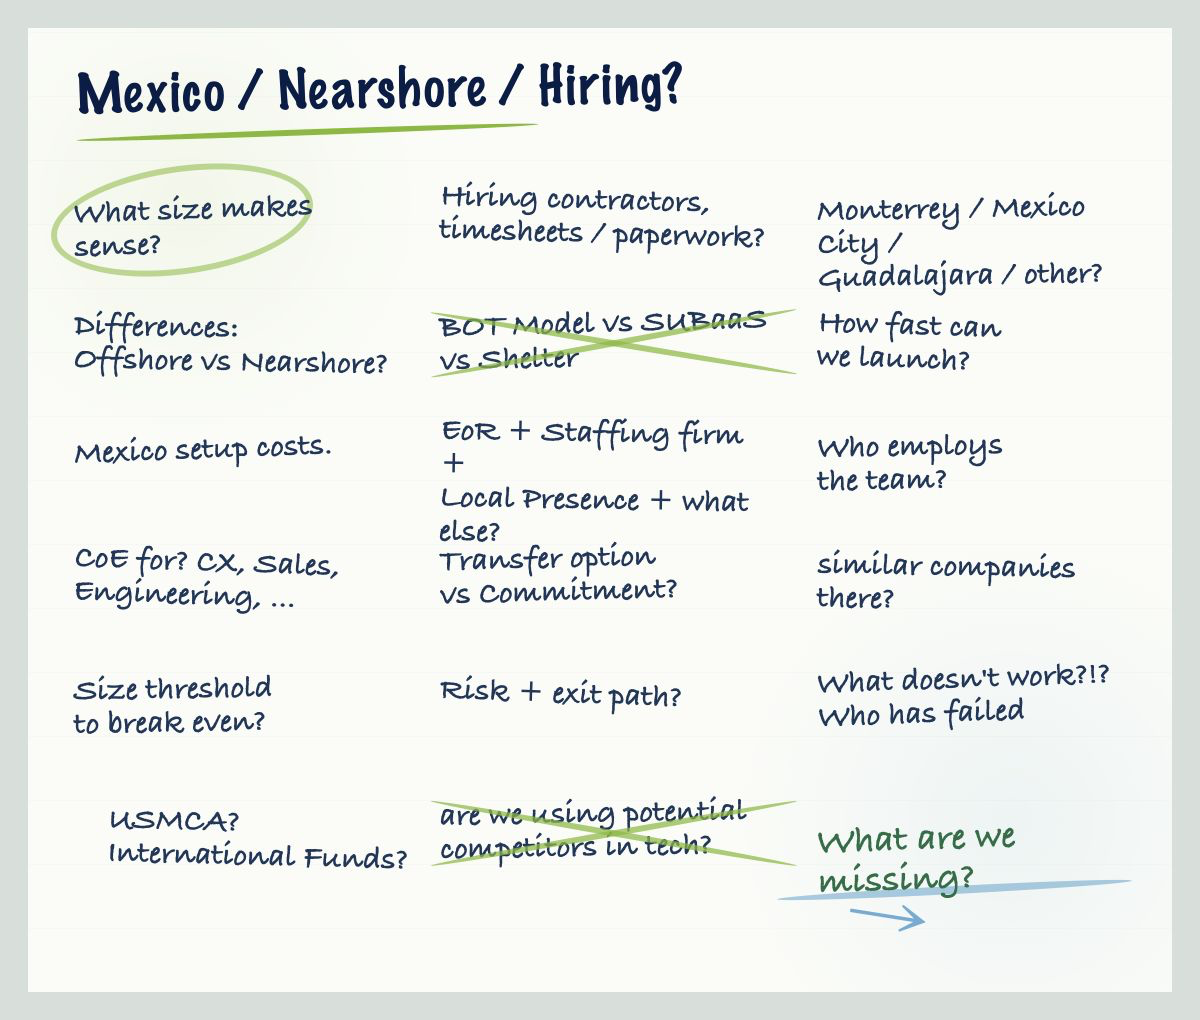 Mexico / Nearshore / Hiring?
What size makes
sense?
Hiring contractors,
timesheets / paperwork?
Monterrey / Mexico
City /
Guadalajara / other?
Differences:
Offshore vs Nearshore?
BOT Model vs SUBaaS
vs Shelter
How fast can
we launch?
Mexico setup costs.
EoR + Staffing firm
+
Local Presence + what
else?
Who employs
the team?
CoE for? CX, Sales,
Engineering, ...
Transfer option
vs Commitment?
similar companies
there?
Size threshold
to break even?
Risk + exit path?
What doesn't work?!?
Who has failed
USMCA?
International Funds?
are we using potential
competitors in tech?
What are we
missing?